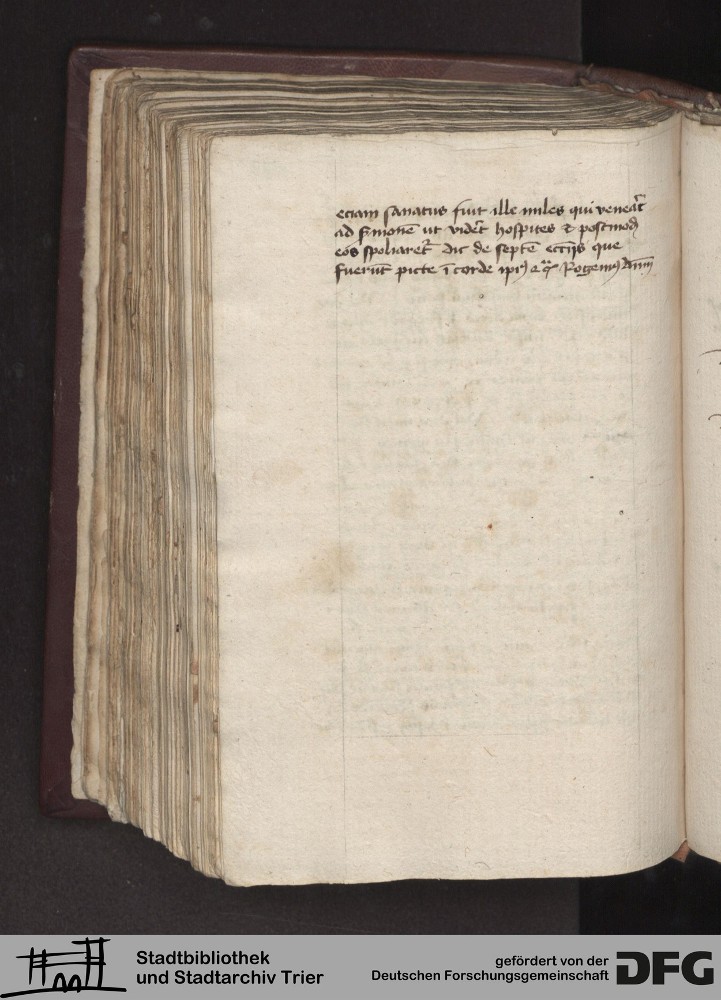 eciam sanatus fuit ille miles qui veneat̄
ad Simonē ut videt̄ hospites & postmodū
eos spoliaret̄ Dic de septē eccīs que
fuerūt picte ī corde
Stadtbibliothek
und Stadtarchiv Trier
gefördert von der
Deutschen Forschungsgemeinschaft
DFG